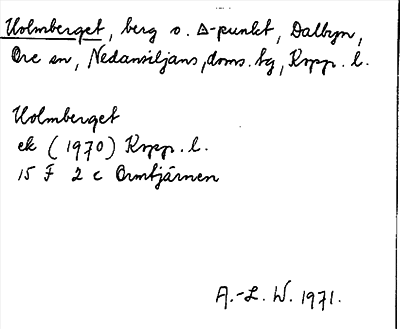 Holmberget, berg o. Δ-punkt, Dalbyn,
Ore sn, Nedansiljans, doms. tg, Kopp. l.
Holmberget
ek (1970) Kopp. l.
15 F 2 c Ormtjärnen
A.-L. W. 1971.